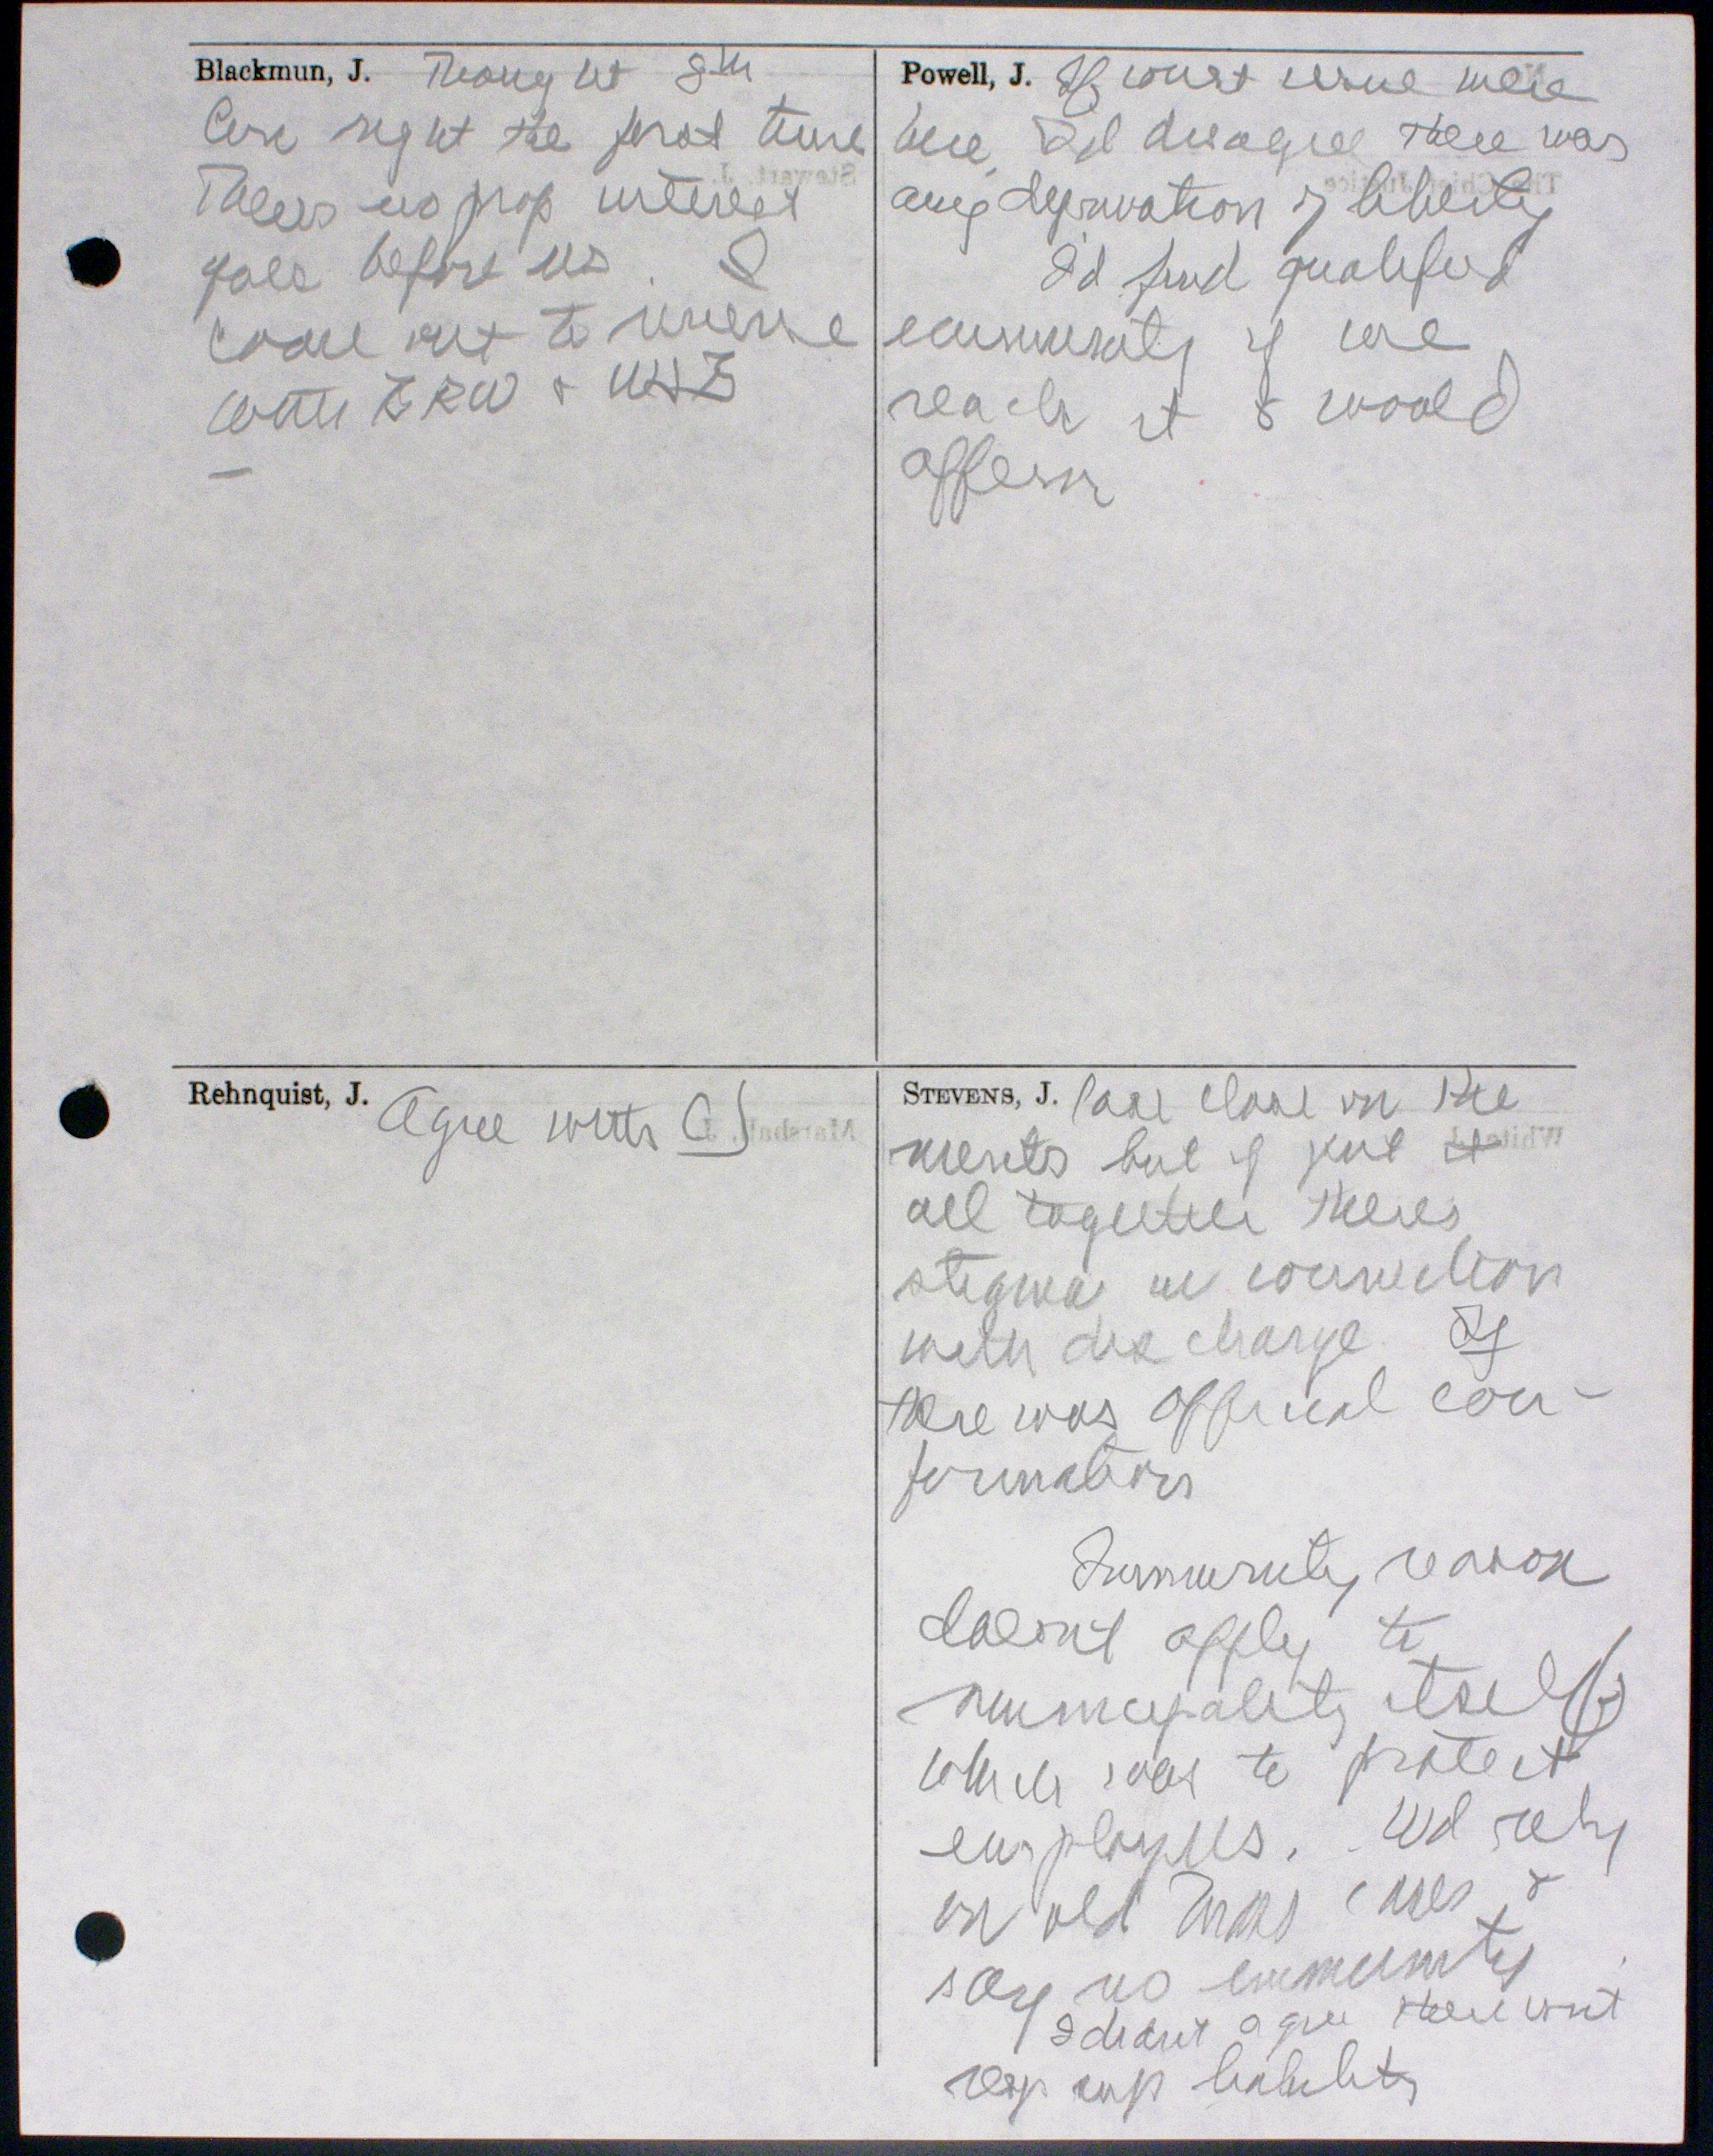 Blackmun, J. Thought 8th
Circ right the first time
Theres no prop interest
before us. I
come out to reverse
with BRW & WJB
Powell, J. If const issue were
here, I'd disagree there was
any deprivation of liberty
I'd find qualified
immunity if we
reach it & would
affirm
Rehnquist, J. Agree with CJ
STEVENS, J. Case close on the
merits but if put it
all together theres
stigma in connection
with discharge. If
there was official con-
formation
Immunity reason
doesnt apply to
municipality itself
which was to protect
employees. Wd rely
on old cases &
say no immunity
I didnt agree there isnt
resp sup liability